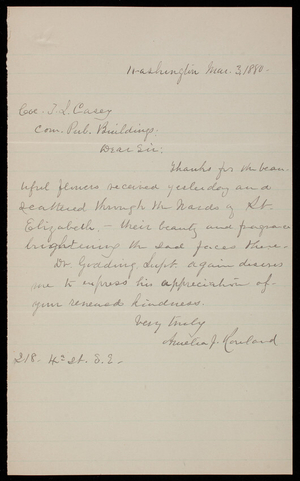 Washington Mar. 3, 1880.
Col. T. L. Casey
Com. Pub. Buildings:
Dear Sir:
Thanks for the beau-
tiful flowers received yesterday and
scattered through the Wards of St.
Elizabeth. - their beauty and fragrance
brightening the sad faces there.
Dr. Godding, Supt. again desires
me to express his appreciation of
your renewed kindness.
Very truly
Amelia J. Howland
218. 4th St. S. E.